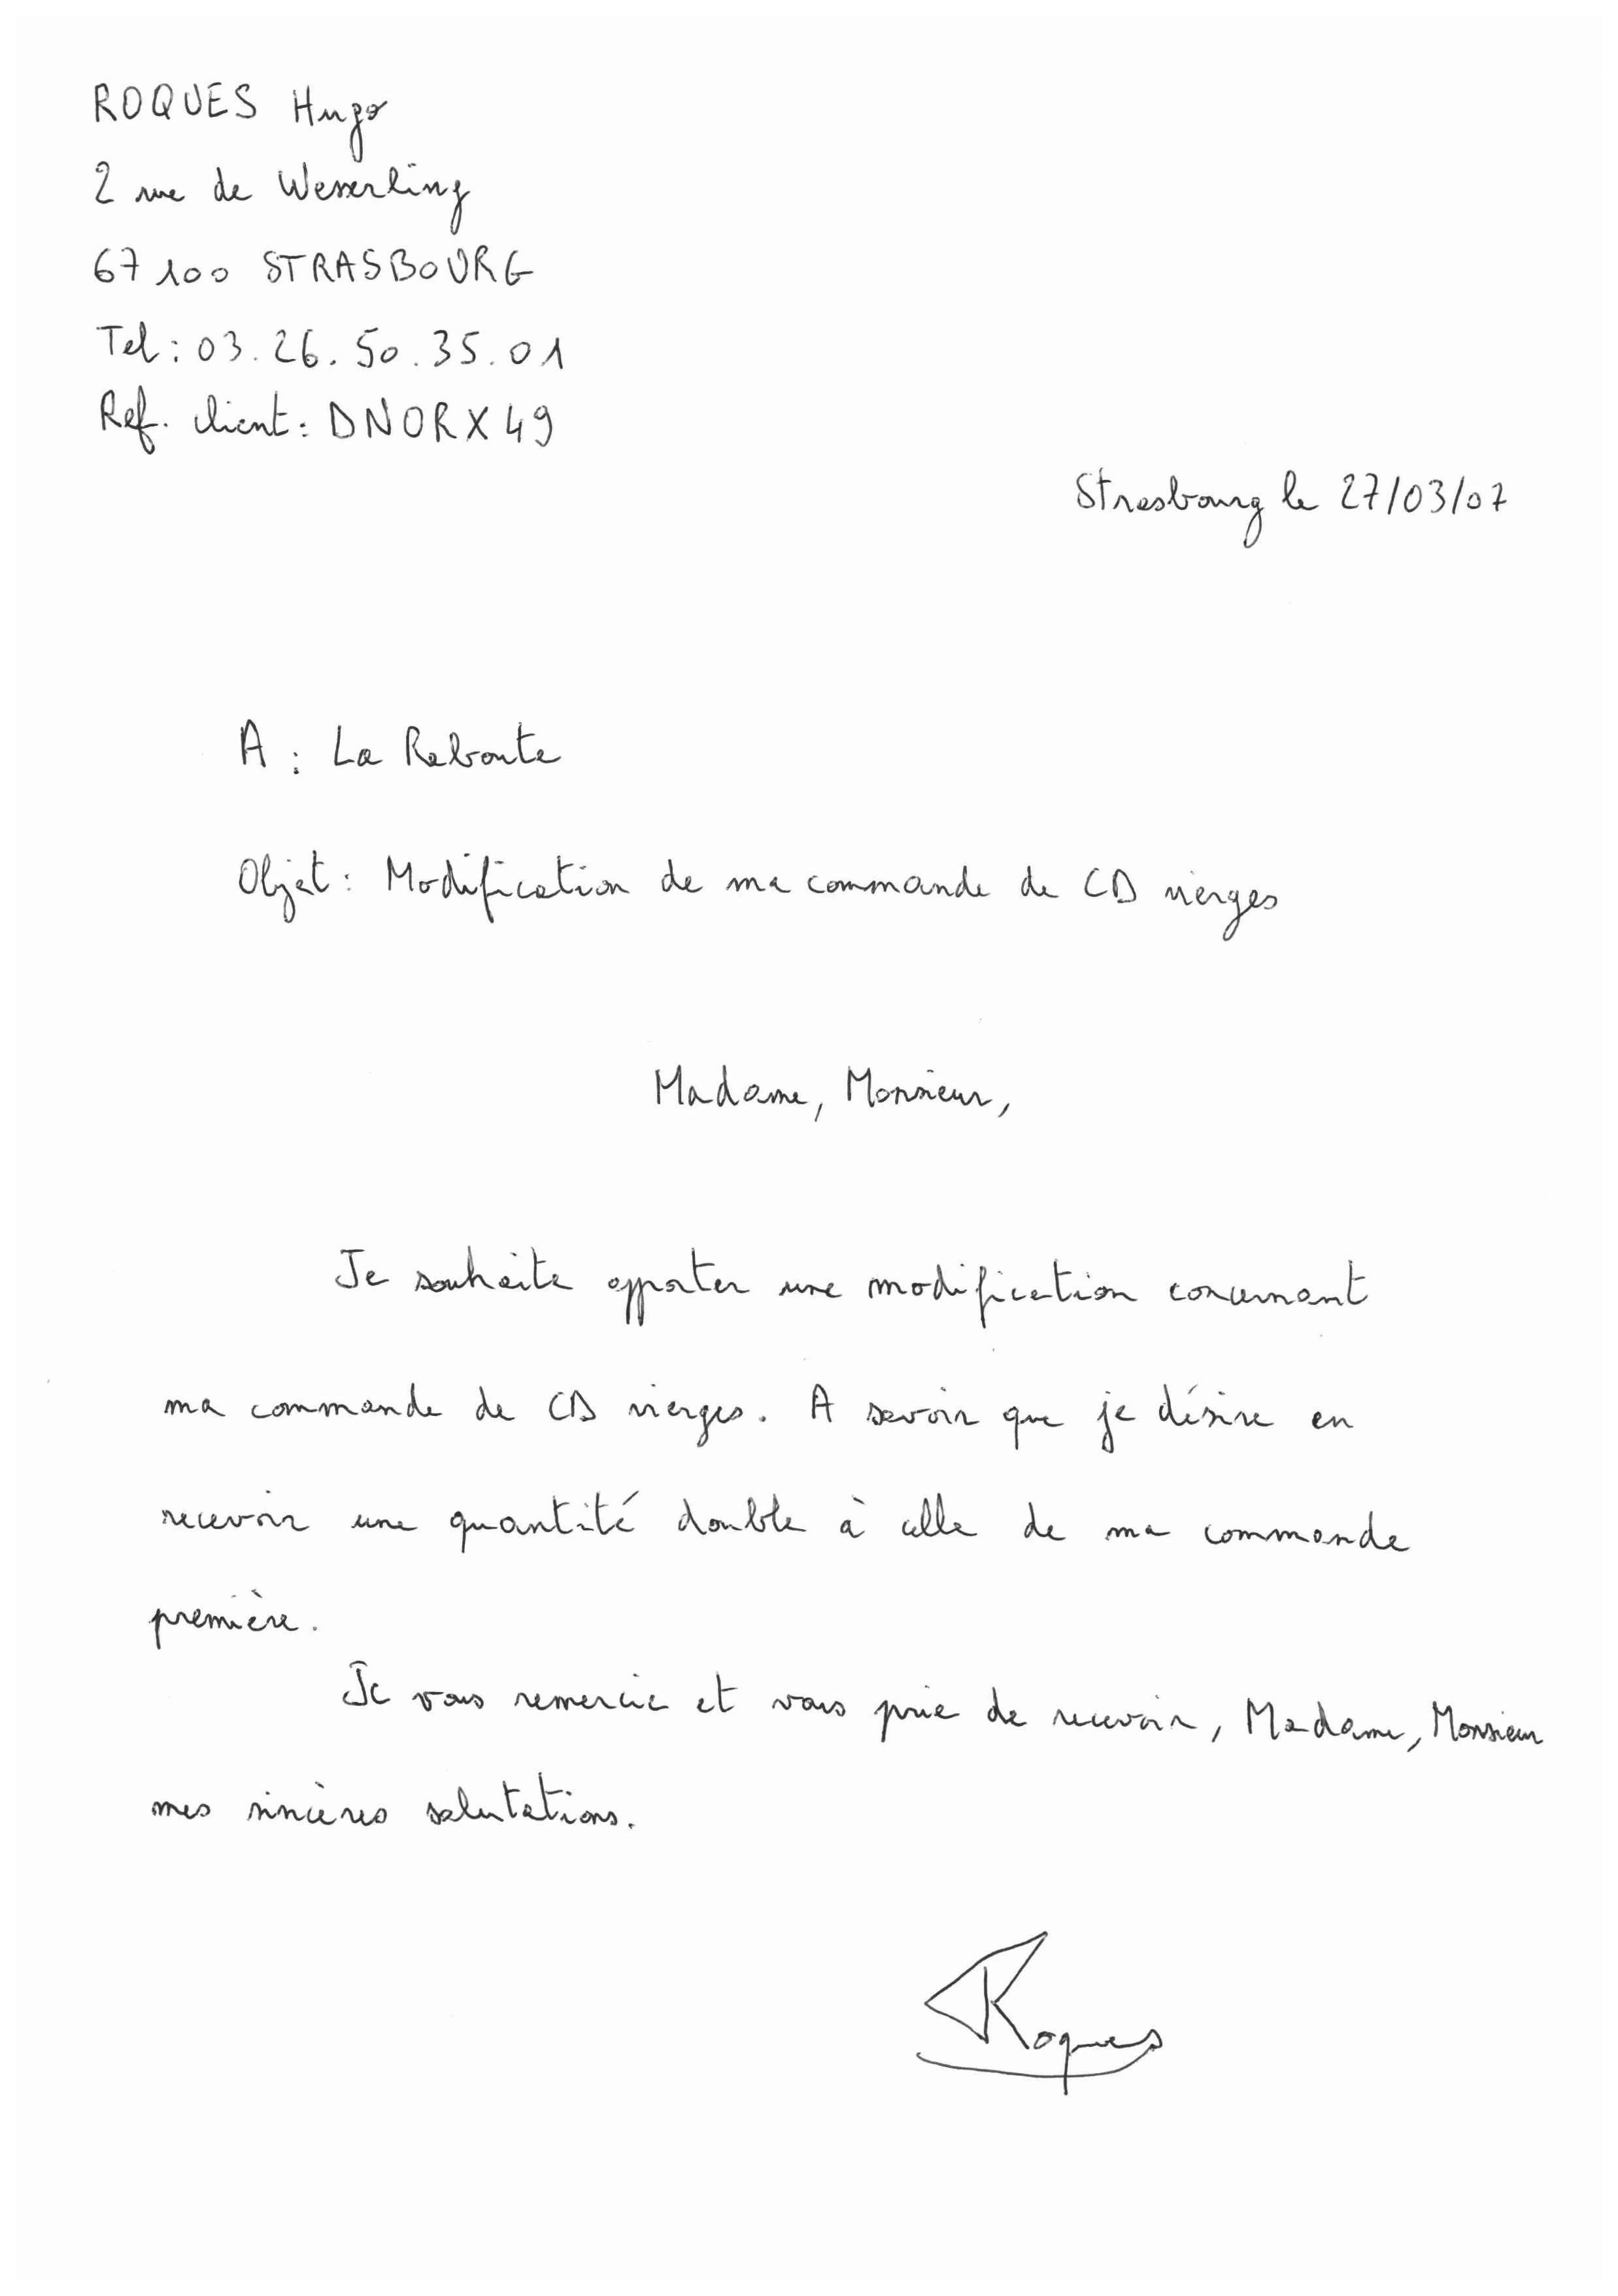 ROQUES Hugo
2 rue de Wesserling
67100 STRASBOURG
Tel : 03.26.50.35.01
Ref. client : DNORX49
Strasbourg le 27/03/07
A : La Reboute
Objet : Modification de ma commande de CD vierges
Madame, Monsieur,
Je souhaite apporter une modification concernant
ma commande de CD vierges. A savoir que je désire en
recevoir une quantité double à celle de ma commande
première.
Je vous remercie et vous prie de recevoir, Madame, Monsieur
mes sincères salutations.
Roques